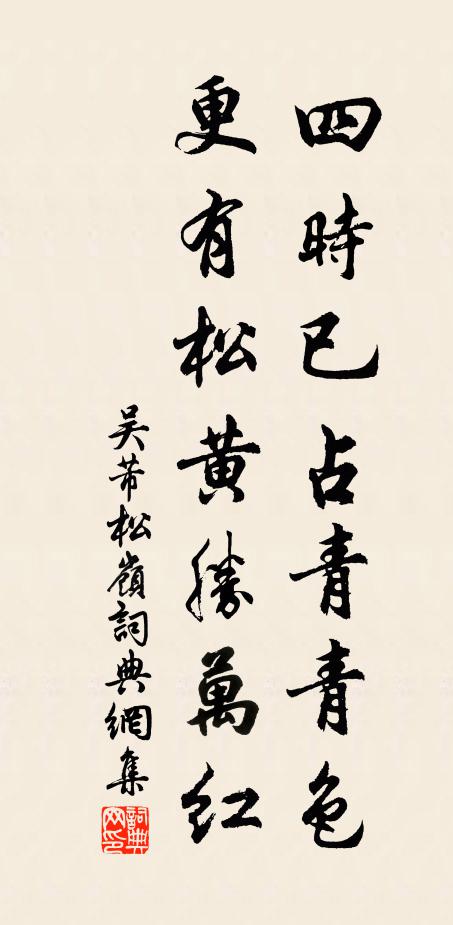 四時已占青青色
更有松黃勝萬紅
吴芾松嶺詞典網集
詞典网印